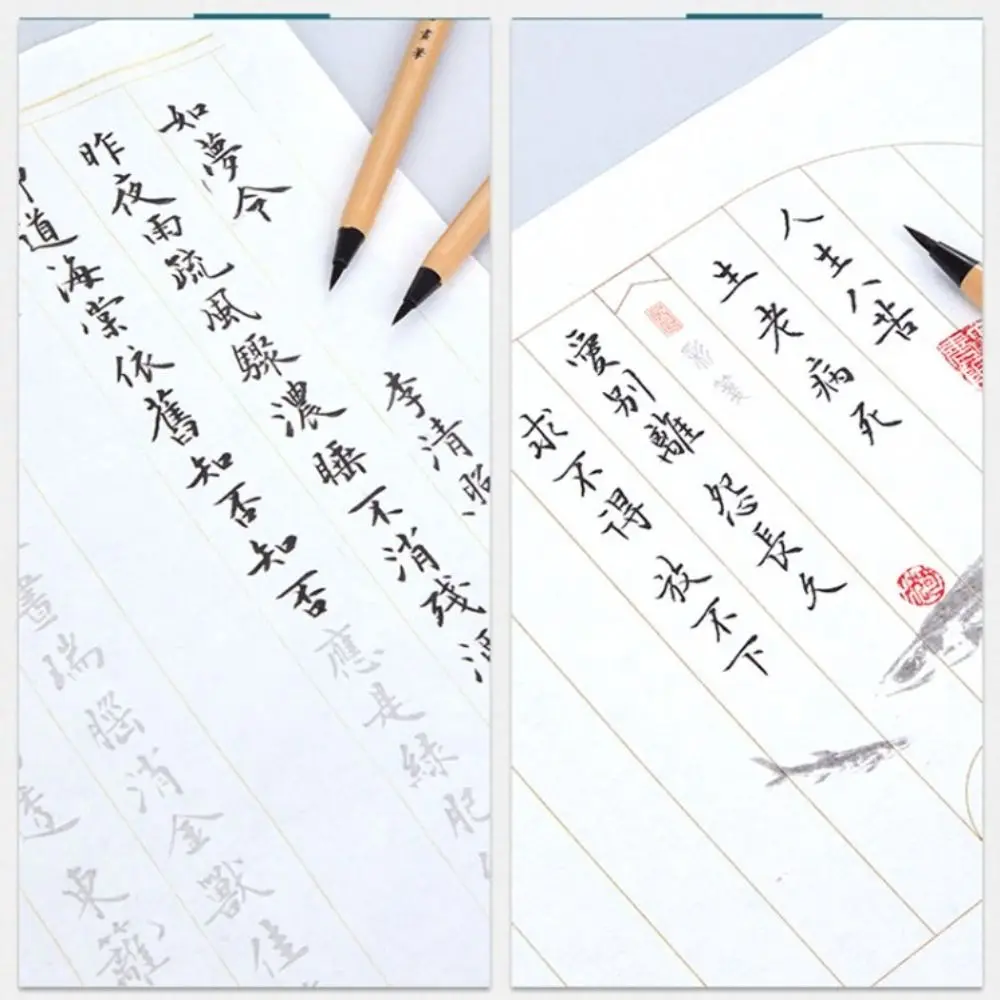 如夢令 李清照
昨夜雨疏風驟濃睡不消残
道海棠依舊知否知否應是綠肥
晝瑞腦消金獸佳
東籬
人生八苦
生老病死
彩箋
愛別離 怨長久
求不得 放不下